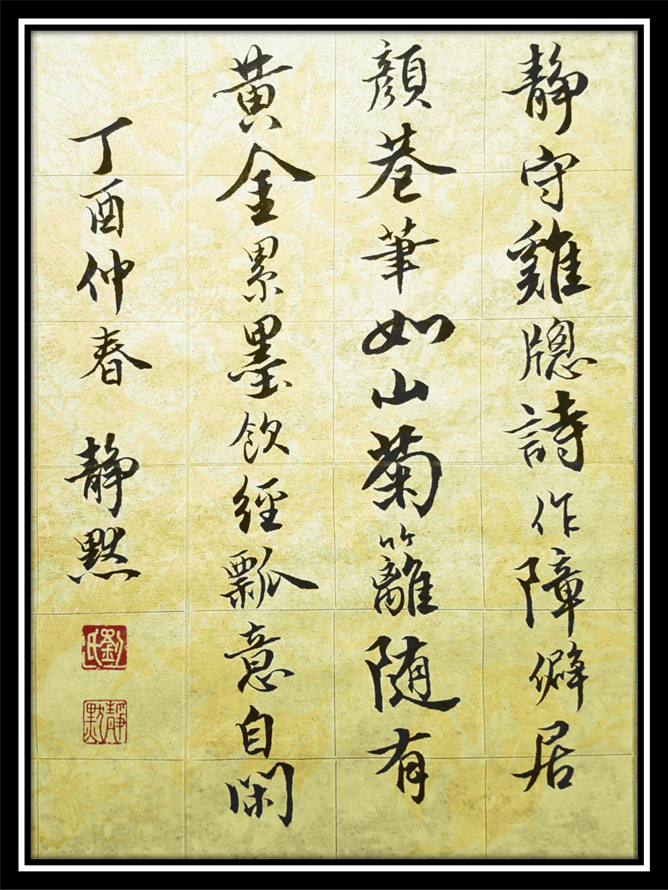 静守雞牕詩作障僻居
顏巷筆如山菊籬随有
黃金累墨飲經瓢意自閑
丁酉仲春 静默
劉氏
静默